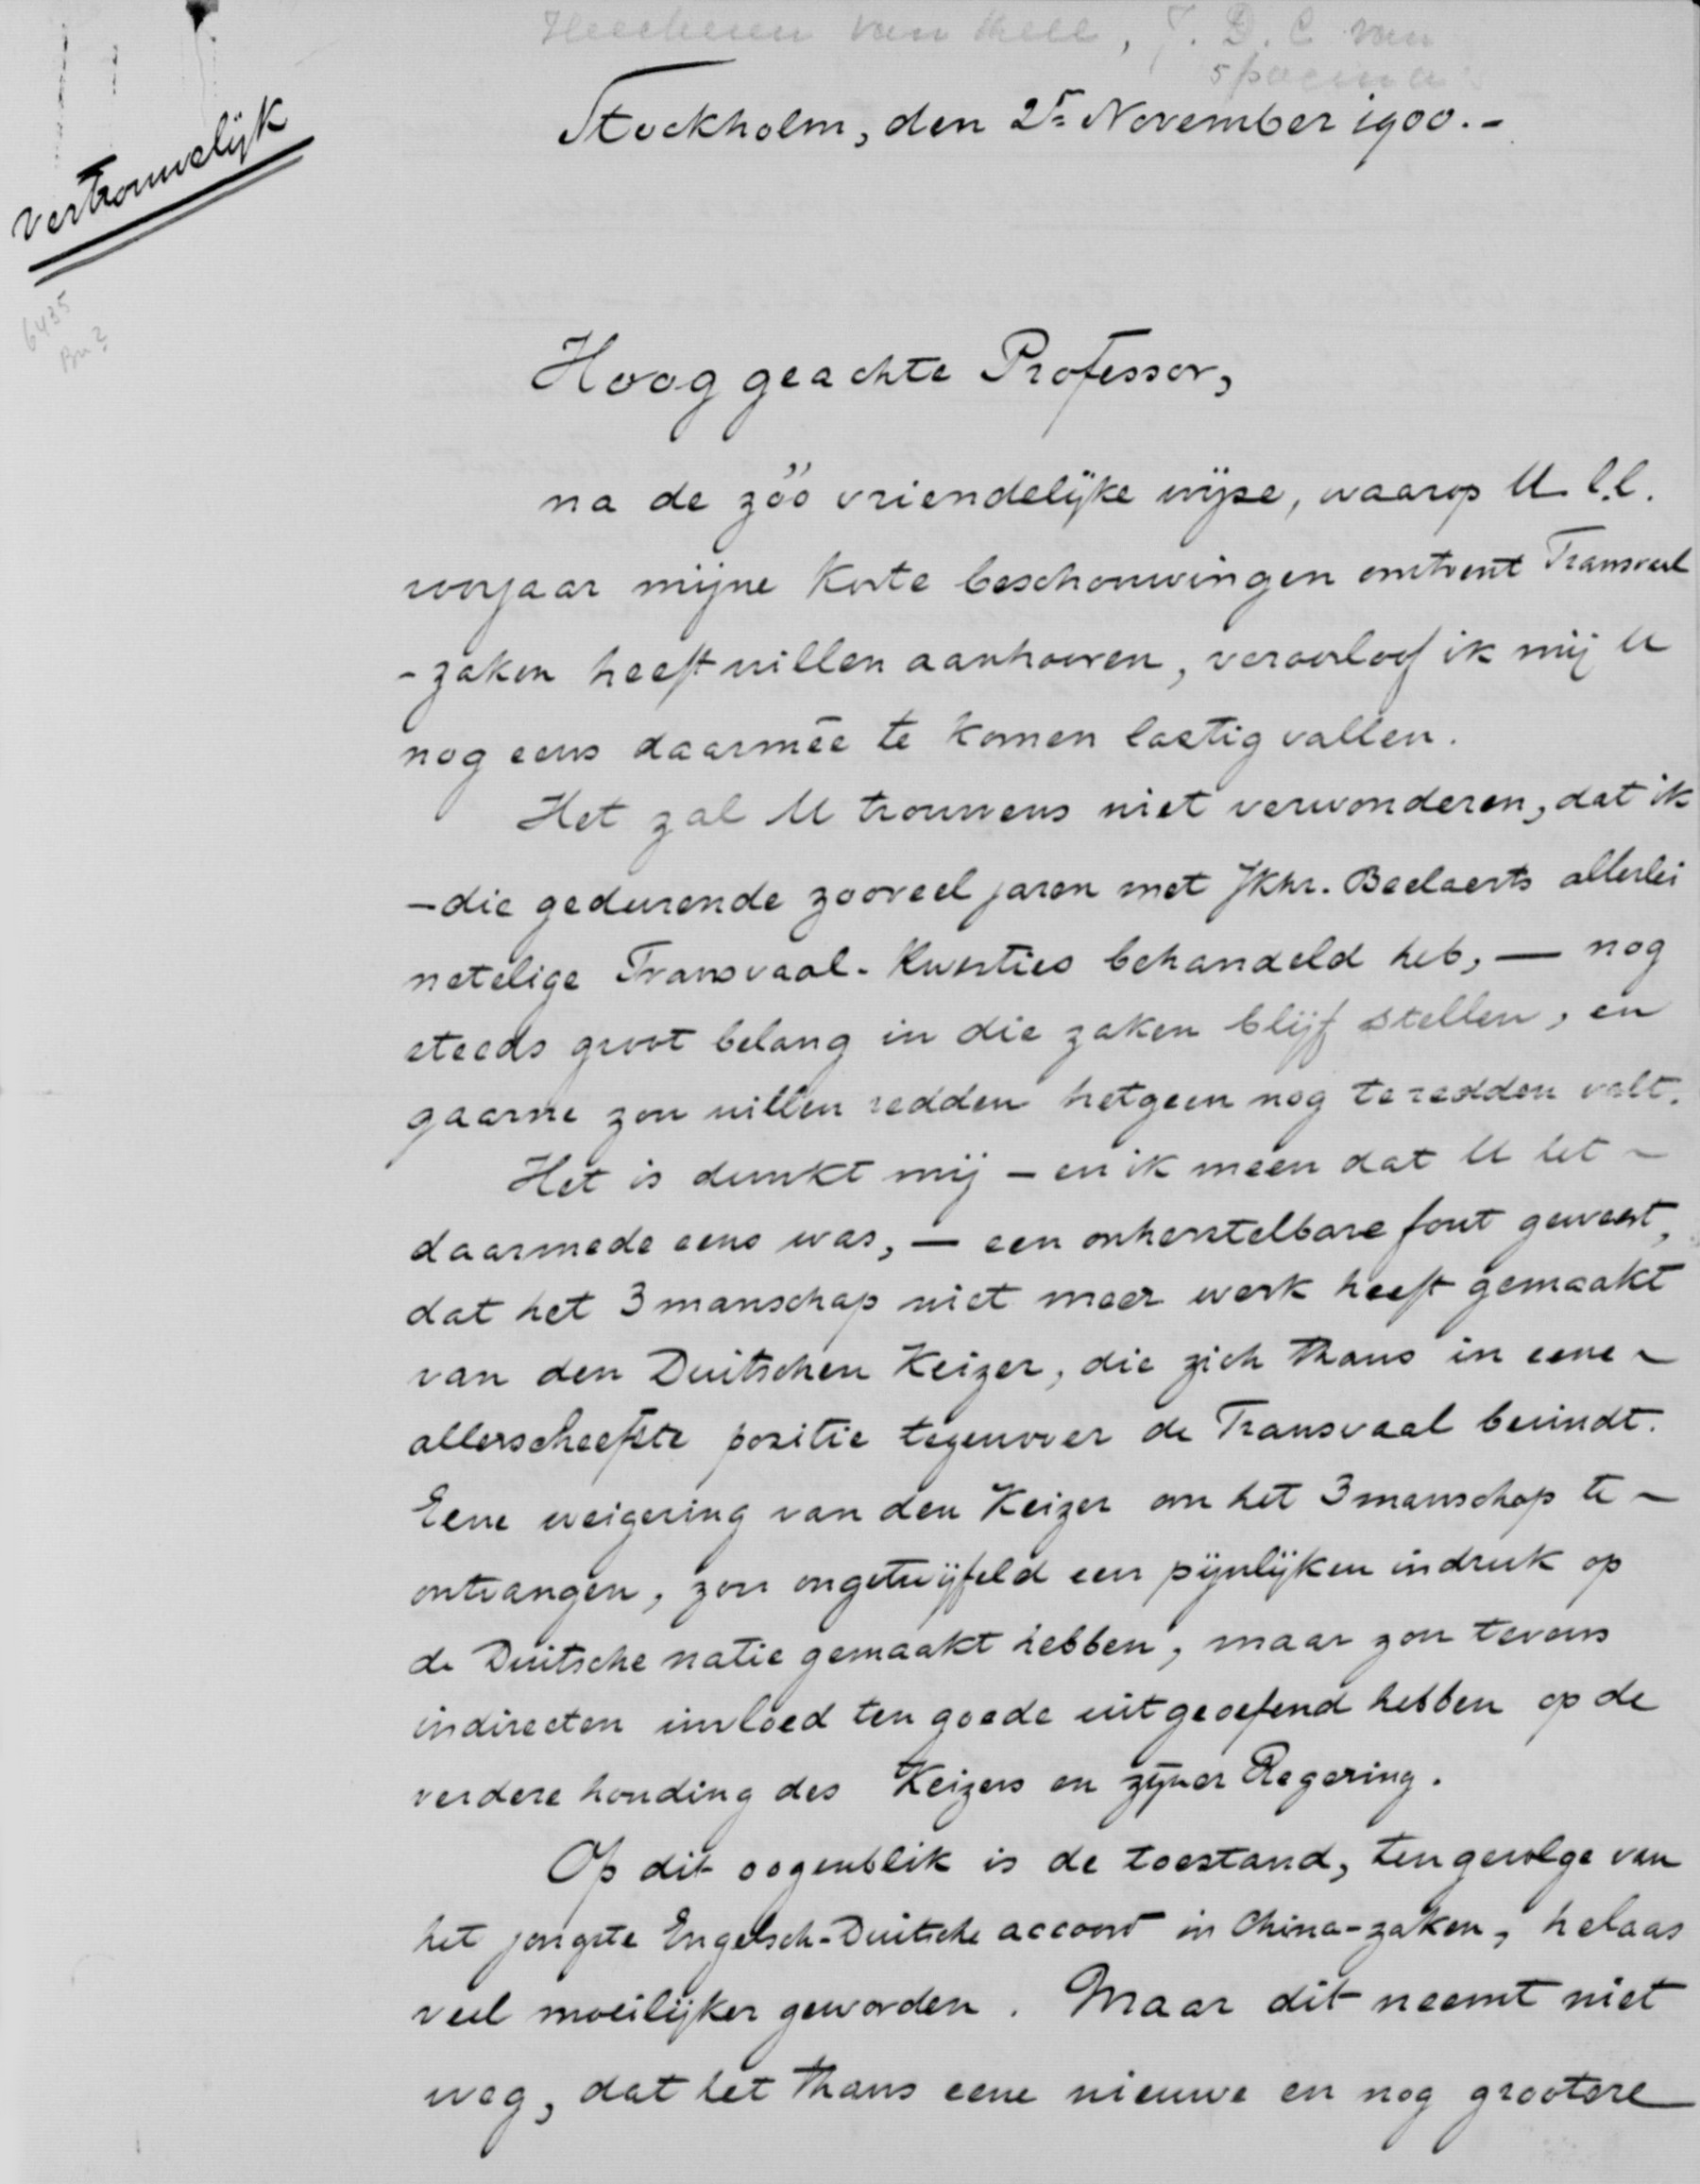 Heeckeren van Kell, J. D. C. van
Stockholm, den 2n November 1900.-
Vertrouwelijk
6435
Hooggeachte Professor,
na de zóó vriendelijke wijze, waarop U l.l.
voorjaar mijne korte beschouwingen omtrent Transvaal
-zaken heeft willen aanhooren, veroorloof ik mij U
nog eens daarmêe te komen lastig vallen.
Het zal U trouwens niet verwonderen, dat ik
-die gedurende zooveel jaren met Jkhr. Beelaerts allerlei
netelige Transvaal-kwesties behandeld heb, — nog
steeds groot belang in die zaken blijf stellen, en
gaarne zou willen redden hetgeen nog te redden valt.
Het is dunkt mij - en ik meen dat U het
daarmede eens was, — een onherstelbare fout geweest,
dat het 3manschap niet meer werk heeft gemaakt
van den Duitschen Keizer, die zich thans in eene
allerscheefste positie tegenover de Transvaal bevindt.
Eene weigering van den Keizer om het 3manschap te
ontvangen, zou ongetwijfeld een pijnlijken indruk op
de Duitsche natie gemaakt hebben, maar zou tevens
indirecten invloed ten goede uitgeoefend hebben op de
verdere houding des Keizers en zijner Regering.
Op dit oogenblik is de toestand, tengevolge van
het jongste Engelsch-Duitsche accoord in China-zaken, helaas
veel moeilijker geworden. Maar dit neemt niet
weg, dat het thans eene nieuwe en nog grootere